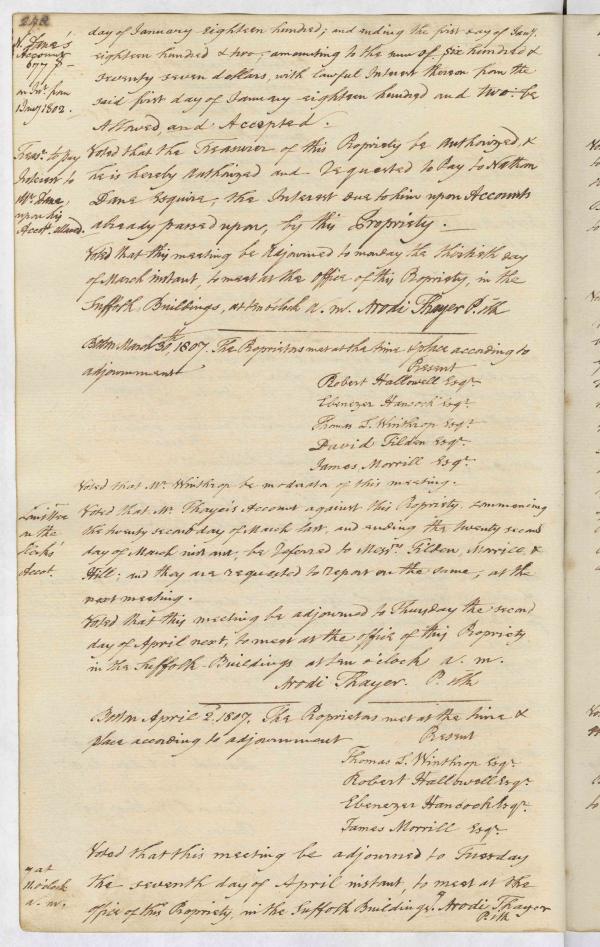 248
N. Dane's
Account
677 $
on Int. from
1 Jany 1802.
day of January eighteen hundred; and ending the first day of Jany.
eighteen hundred & two; amounting to the sum of Six hundred &
seventy seven dollars, with lawful Interest thereon from the
said first day of January eighteen hundred and two: be
Allowed, and Accepted.
Treasr. to Pay
Interest to
Mr. Dane,
upon his
Accots. allowd.
Voted that the Treasurer of this Propriety be Authorized, &
he is hereby Authorized and requested to Pay to Nathan
Dane Esquire, the Interest due to him upon Accounts
already passed upon, by this Propriety.
Voted that this meeting be Adjourned to monday the thirtieth day
of March instant, to meet at the Office of this Propriety, in the
Suffolk Buildings, at ten oclock a. m. Arodi Thayer P. Clk
Boston March 30th 1807. The Proprietors met at the time & place according to
adjournment
Present
Robert Hallowell Esqr.
Ebenezer Hancock Esqr.
Thomas L. Winthrop Esqr.
David Tilden Esqr.
James Morrill Esqr.
Voted that Mr. Winthrop be moderator of this meeting.
Comittee
on the
Clerks
Accot.
Voted that Mr. Thayer's Account against this Propriety, commencing
the twenty second day of March last, and ending the twenty second
day of March instant, be referred to Messrs. Tilden, Morrill, &
Hill; and they are requested to report on the same, at the
next meeting.
Voted that this meeting be adjourned to Thursday the second
day of April next, to meet at the office of this Propriety
in the Suffolk Buildings at ten o'clock a. m.
Arodi Thayer. P. Clk
Boston April 2d. 1807. The Proprietors met at the time &
place according to adjournment
Present
Thomas L. Winthrop Esqr.
Robert Hallowell Esqr.
Ebenezer Hancock Esqr.
James Morrill Esqr.
Voted that this meeting be adjourned to Tuesday
the seventh day of April instant, to meet at the
at
11 o'clock
a. m.
office of this Propriety, in the Suffolk Buildings. Arodi Thayer
P. Clk